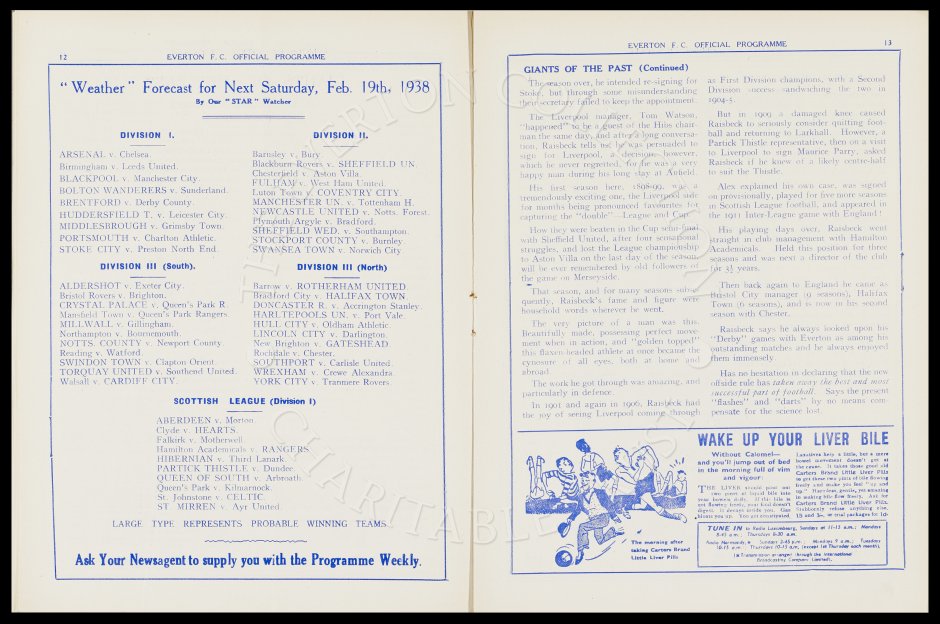 12
EVERTON F.C. OFFICIAL PROGRAMME
"Weather" Forecast for Next Saturday, Feb. 19th, 1938
By Our "STAR" Watcher
DIVISION I.
ARSENAL v. Chelsea.
Birmingham v. Leeds United.
BLACKPOOL v. Manchester City.
BOLTON WANDERERS v. Sunderland.
BRENTFORD v. Derby County.
HUDDERSFIELD T. v. Leicester City.
MIDDLESBROUGH v. Grimsby Town.
PORTSMOUTH v. Charlton Athletic.
STOKE CITY v. Preston North End.
DIVISION II.
Barnsley v. Bury
Blackburn Rovers v. SHEFFIELD UN.
Chesterfield v. Aston Villa.
FULHAM v. West Ham United.
Luton Town v. COVENTRY CITY.
MANCHESTER UN. v. Tottenham H.
NEWCASTLE UNITED v. Notts. Forest.
Plymouth Argyle v. Bradford.
SHEFFIELD WED. v. Southampton.
STOCKPORT COUNTY v. Burnley
SWANSEA TOWN v. Norwich City.
DIVISION III (South).
ALDERSHOT v. Exeter City.
Bristol Rovers v. Brighton.
CRYSTAL PALACE v. Queen's Park R
Mansfield Town v. Queen's Park Rangers.
MILLWALL v. Gillingham.
Northampton v. Bournemouth.
NOTTS. COUNTY v. Newport County.
Reading v. Watford.
SWINDON TOWN v. Clapton Orient.
TORQUAY UNITED v. Southend United.
Walsall v. CARDIFF CITY.
DIVISION III (North)
Barrow v. ROTHERHAM UNITED
Bradford City v. HALIFAX TOWN
DONCASTER R. v. Accrington Stanley.
HARTLEPOOLS UN. v. Port Vale.
HULL CITY v. Oldham Athletic.
LINCOLN CITY v. Darlington.
New Brighton v. GATESHEAD
Rochdale v. Chester.
SOUTHPORT v. Carlisle United.
WREXHAM v. Crewe Alexandra.
YORK CITY v. Tranmere Rovers
SCOTTISH LEAGUE (Division I)
ABERDEEN v. Morton
Clyde v. HEARTS.
Falkirk v. Motherwell
Hamilton Academicals v. RANGERS
HIBERNIAN v. Third Lanark.
PARTICK THISTLE v. Dundee.
QUEEN OF SOUTH v. Arbroath.
Queen's Park v. Kilmarnock.
St. Johnstone v. CELTIC.
ST. MIRREN v. Ayr United.
LARGE TYPE REPRESENTS PROBABLE WINNING TEAMS
Ask Your Newsagent to supply you with the Programme Weekly.
EVERTON F.C. OFFICIAL PROGRAMME
13
GIANTS OF THE PAST (Continued)
The season over, he intended re-signing for
Stoke, but through some misunderstanding
their secretary failed to keep the appointment.
The Liverpool manager, Tom Watson,
"happened" to be a guest of the Hibs chair-
man the same day, and after a long conversa-
tion, Raisbeck tells us, he was persuaded to
sign for Liverpool, a decision, however,
which he never regretted, for he was a very
happy man during his long stay at Anfield.
His first season here, 1898-99, was a
tremendously exciting one, the Liverpool side
for months being pronounced favourites for
capturing the "double"—League and Cup.
How they were beaten in the Cup semi-final
with Sheffield United, after four sensational
struggles, and lost the League championship
to Aston Villa on the last day of the season,
will be ever remembered by old followers of
the game on Merseyside.
That season, and for many seasons subse-
quently, Raisbeck's fame and figure were
household words wherever he went.
The very picture of a man was this.
Beautifully made, possessing perfect move-
ment when in action, and "golden topped"
this flaxen-headed athlete at once became the
cynosure of all eyes, both at home and
abroad.
The work he got through was amazing, and
particularly in defence.
In 1901 and again in 1906, Raisbeck had
the joy of seeing Liverpool coming through
as First Division champions, with a Second
Division success sandwiching the two in
1904-5.
But in 1909 a damaged knee caused
Raisbeck to seriously consider quitting foot-
ball and returning to Larkhall. However, a
Partick Thistle representative, then on a visit
to Liverpool to sign Maurice Parry, asked
Raisbeck if he knew of a likely centre-half
to suit the Thistle.
Alex explained his own case, was signed
on provisionally, played for five more seasons
in Scottish League football, and appeared in
the 1911 Inter-League game with England!
His playing days over, Raisbeck went
straight in club management with Hamilton
Academicals. Held this position for three
seasons and was next a director of the club
for 3½ years.
Then back again to England he came as
Bristol City manager (9 seasons), Halifax
Town (6 seasons), and is now in his second
season with Chester.
Raisbeck says he always looked upon his
"Derby" games with Everton as among his
outstanding matches and he always enjoyed
them immensely.
Has no hesitation in declaring that the new
offside rule has taken away the best and most
successful part of football. Says the present
"flashes" and "darts" by no means com-
pensate for the science lost.
The morning after
taking Carters Brand
Little Liver Pills
WAKE UP YOUR LIVER BILE
Without Calomel—
and you'll jump out of bed
in the morning full of vim
and vigour
THE LIVER should pour out
two pints of liquid bile into
your bowels daily. If this bile is
not flowing freely, your food doesn't
digest. It decays inside you. Gas
bloats you up. You get constipated.
Laxatives help a little, but a mere
bowel movement doesn't get at
the cause. It takes those good old
Carters Brand Little Liver Pills
to get these two pints of bile flowing
freely and make you feel "up and
up." Harmless, gentle, yet amazing
in making bile flow freely. Ask for
Carters Brand Little Liver Pills.
Stubbornly refuse anything else.
TUNE IN to Radio Luxembourg, Sundays at 11-15 a.m.; Mondays
8-45 a.m.; Thursdays 8-30 a.m.
Radio Normandy, Sundays 2-45 p.m. Mondays 9 a.m.; Tuesdays
10-15 p.m. Thursdays 10-15 a.m. (except 1st Thursday each month).
transmission arranged through the International
Broadcasting Company Limited.